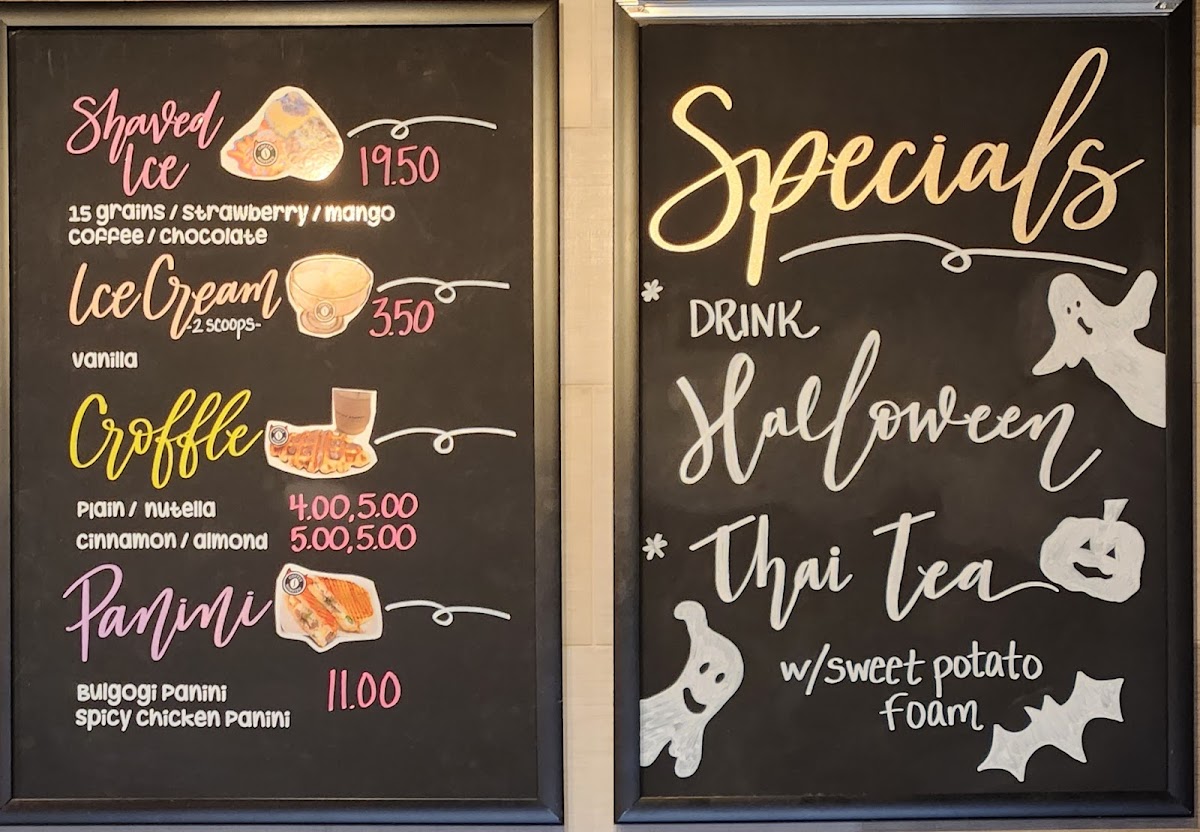 Shaved
Ice
19.50
15 grains / strawberry / mango
coffee / chocolate
Ice Cream
-2 scoops-
3.50
vanilla
Croffle
Plain / nutella 4.00, 5.00
cinnamon / almond 5.00, 5.00
Panini
11.00
Bulgogi Panini
spicy chicken Panini
Specials
* DRINK
Halloween
* Thai Tea
w/sweet potato
foam